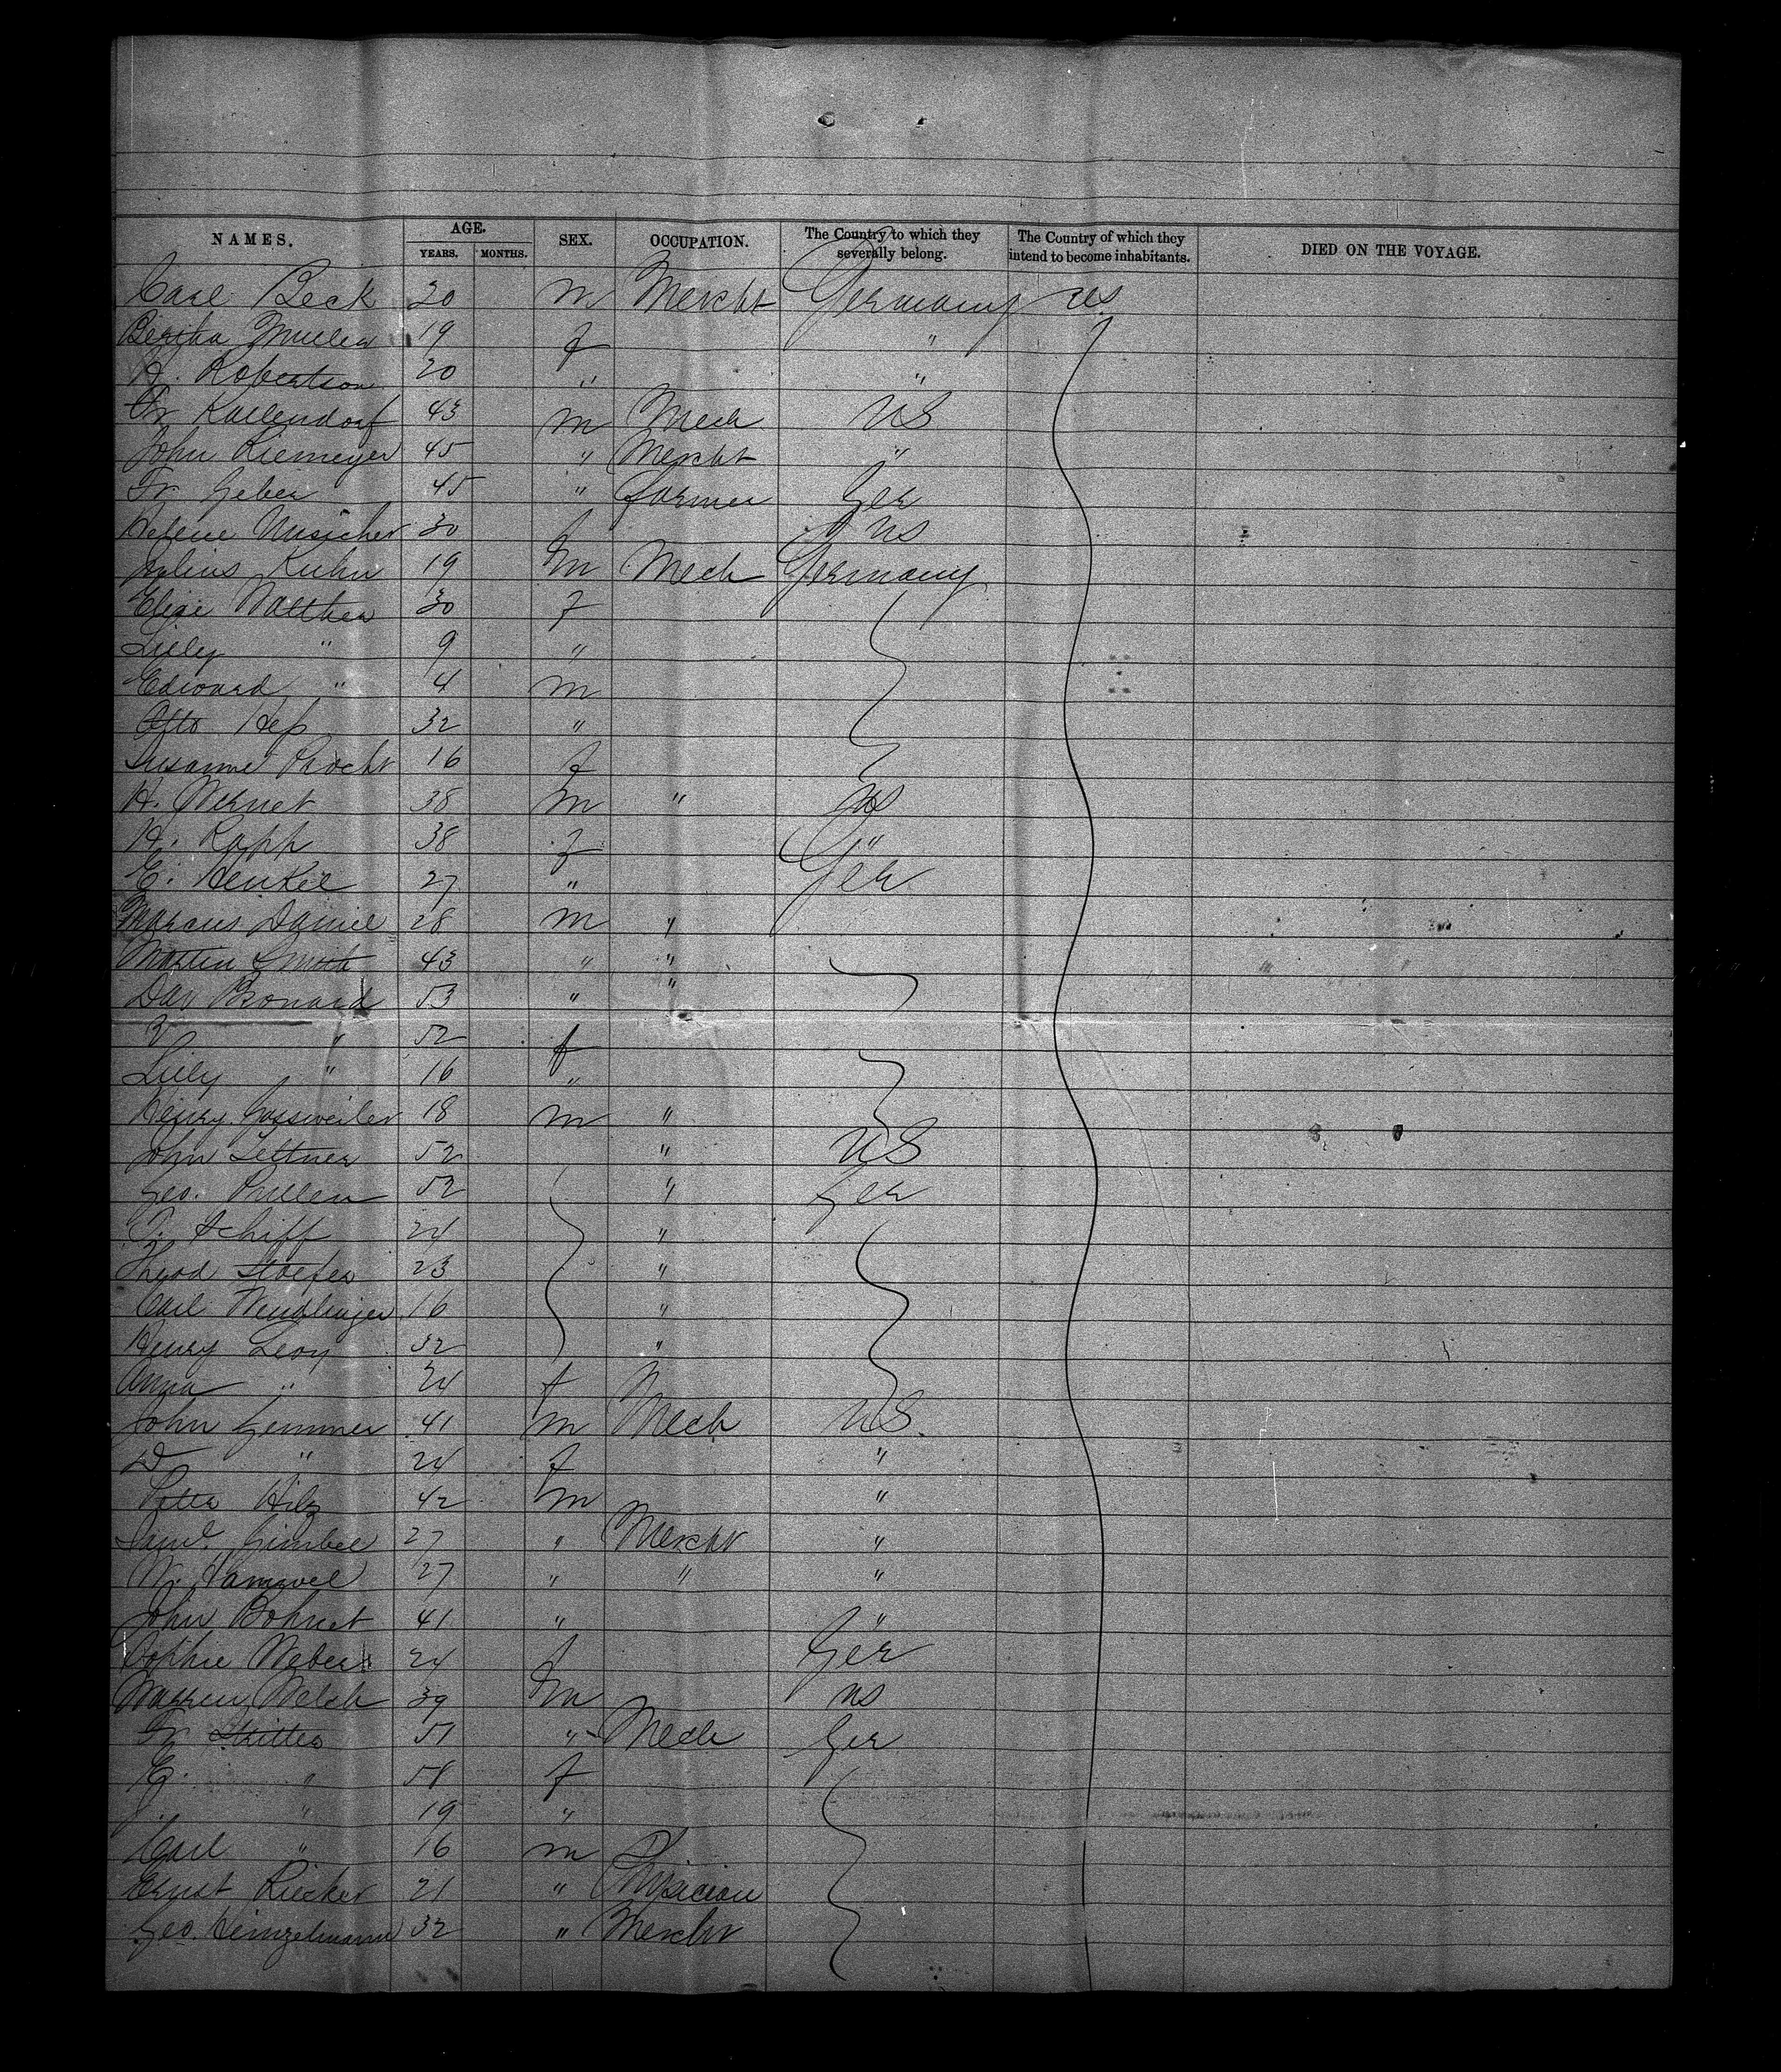 NAMES. AGE. YEARS. MONTHS. SEX. OCCUPATION. The Country to which they severally belong. The Country of which they intend to become inhabitants. DIED ON THE VOYAGE.
Carl Beck 20 m Mercht Germany US
Bertha Muller 19 f "
H. Robertson 20 " "
Fr Kallendorf 43 m Mech US
John Riemeyer 45 " Mercht "
Fr Geber 45 " Farmer Ger
Helene 30 f US
Julius Kuhn 19 m Mech Germany
Elise Walther 30 f
Lilly " 9 "
Edward " 4 m
Otto Heß 32 "
Susanne 16 f
H. Wernet 38 m " US
H. Rapp 38 f "
E. Henkel 27 " Ger
Marcus Daniel 28 m "
Martin Smith 43 " "
Dav Bronard 53 " "
" 52 f
Lilly " 16 "
Henry Gossweiler 18 m "
John Lettner 52 " US
Geo. Pullen 52 " Ger
C. Schiff 24 "
Theod Stoefer 23 "
Carl Wendlinger 16 "
Henry Levy 32 "
Anna " 24 f
John Gemmer 41 m Mech US
D " 24 f "
Hilz 42 m "
Saml Gimbel 27 " Mercht "
27 " " "
John Bohnet 41 " "
Sophie Weber 24 f Ger
Warren Welch 39 m US
Fr 51 " Mech Ger
E. " 51 f
" 19 "
Carl " 16 m
Ernst Riecker 21 " Physician
Geo. Heinzelmann 32 " Mercht